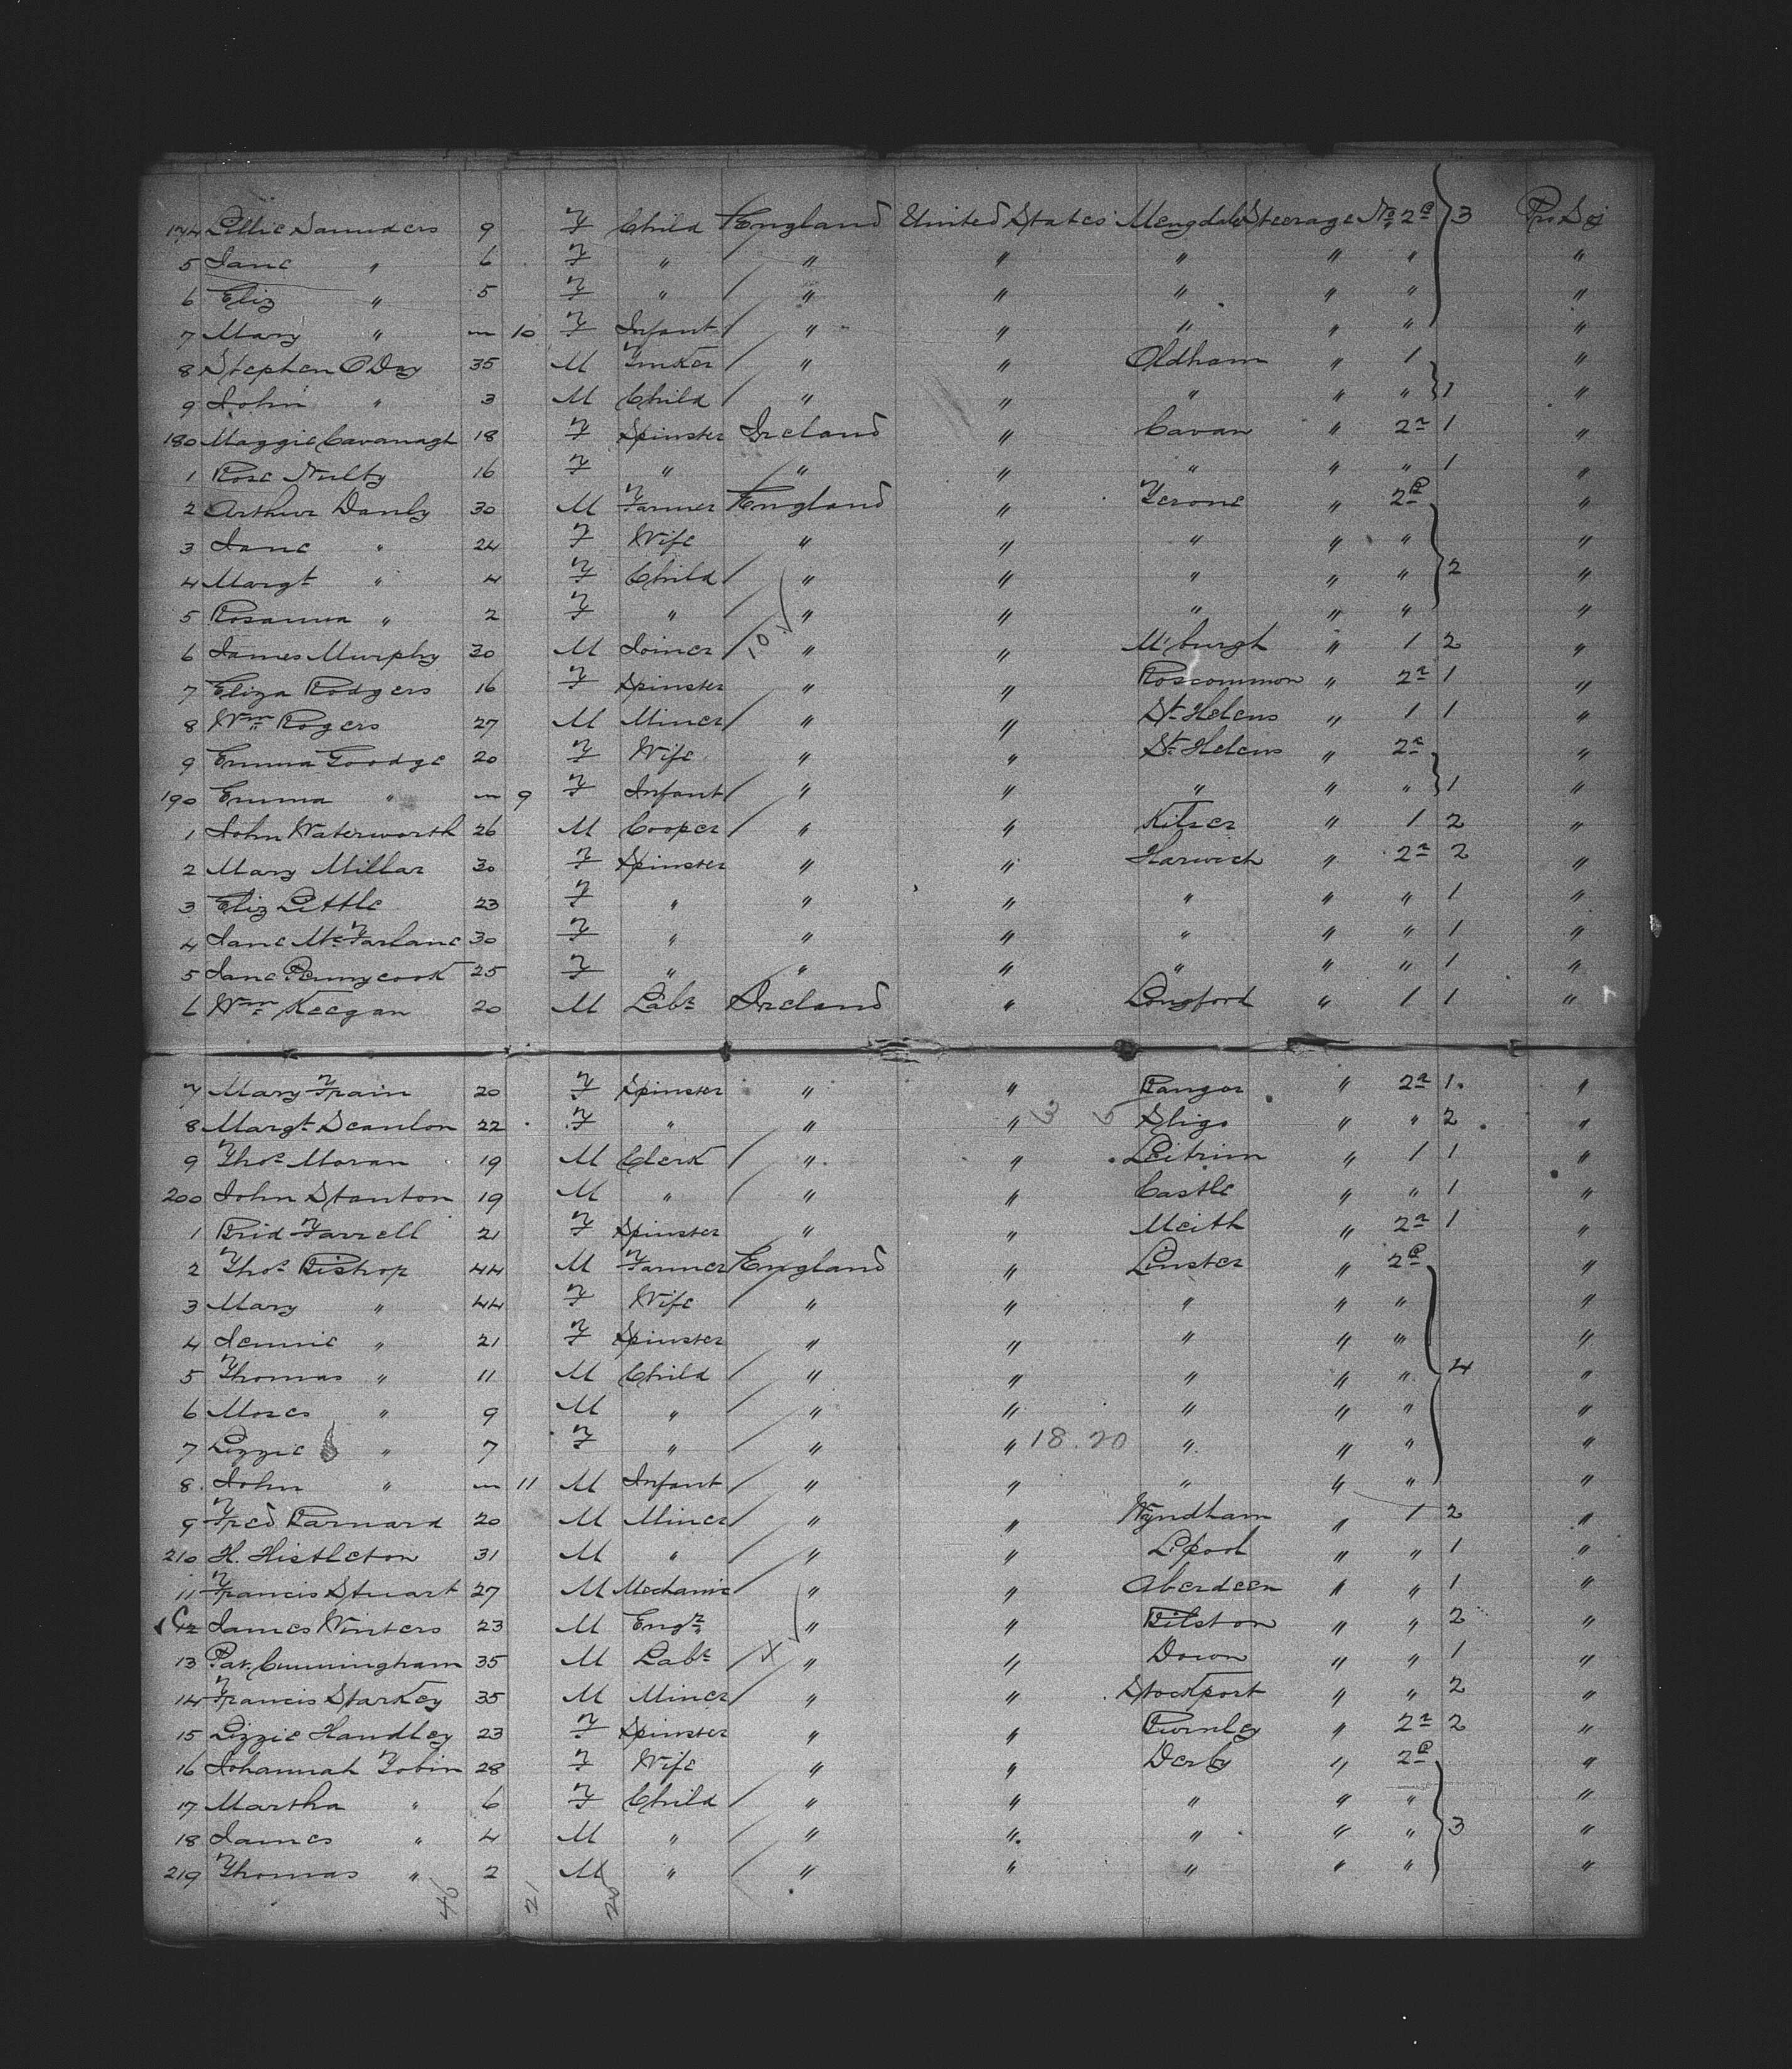 174 Lillie Saunders 9 F Child England United States Mengdale Steerage No 2a 3 Pro Soj
5 Jane " 6 F " " " " " " "
6 Eliz " 5 F " " " " " " "
7 Mary " m 10 F Infant " " " " " "
8 Stephen O Day 35 M Yonker " " Oldham " 1 "
9 John " 3 M Child " " " " " 1 "
180 Maggie Cavanagh 18 F Spinster Ireland " Cavan " 2a 1 "
1 Rose Nulty 16 F " " " " " " 1 "
2 Arthur Danby 30 M Farmer England " Yerone " 2a "
3 Jane " 24 F Wife " " " " " "
4 Margt " 4 F Child " " " " " 2 "
5 Rosanna " 2 F " " " " " " "
6 James Murphy 30 M Joiner 10 " " M'burgh " 1 2 "
7 Eliza Rodgers 16 F Spinster " " Roscommon " 2a 1 "
8 Wm Rogers 27 M Miner " " St Helens " 1 1 "
9 Emma Goodge 20 F Wife " " St Helens " 2a "
190 Emma " m 9 F Infant " " " " " 1 "
1 John Waterworth 26 M Cooper " " " 1 2 "
2 Mary Millar 30 F Spinster " " Harwich " 2a 2 "
3 Eliz Little 23 F " " " " " " 1 "
4 Jane McFarlane 30 F " " " " " " 1 "
5 Jane Pennycook 25 F " " " " " " 1 "
6 Wm Keegan 20 M Labr Ireland " Longford " 1 1 "
7 Mary Frain 20 F Spinster " " Bangor " 2a 1 "
8 Margt Scanlon 22 F " " " Sligo " " 2 "
9 Thos Moran 19 M Clerk " " Leitrim " 1 1 "
200 John Stanton 19 M " " " Castle " " 1 "
1 Brid Farrell 21 F Spinster " " Meith " 2a 1 "
2 Thos Bishop 44 M Farmer England " Linster " 2a "
3 Mary " 44 F Wife " " " " " "
4 Jennie " 21 F Spinster " " " " " "
5 Thomas " 11 M Child " " " " " 4 "
6 Moses " 9 M " " " " " " "
7 Lizzie " 7 F " " " 18.20 " " " "
8 John " m 11 M Infant " " " " " "
9 Fred Barnard 20 M Miner " " Wyndham " 1 2 "
210 H. Histleton 31 M " " " L'pool " " 1 "
11 Francis Stuart 27 M Mechanic " " Aberdeen " " 1 "
12 James Winters 23 M Engr " " Bilston " " 2 "
13 Pat. Cunningham 35 M Labr X " " Down " " 1 "
14 Francis Starkey 35 M Miner " " Stockport " " 2 "
15 Lizzie Handley 23 F Spinster " " Burnley " 2a 2 "
16 Johannah Tobin 28 F Wife " " Derby " 2a "
17 Martha " 6 F Child " " " " " "
18 James " 4 M " " " " " " 3 "
219 Thomas " 2 M " " " " " " "
46 21